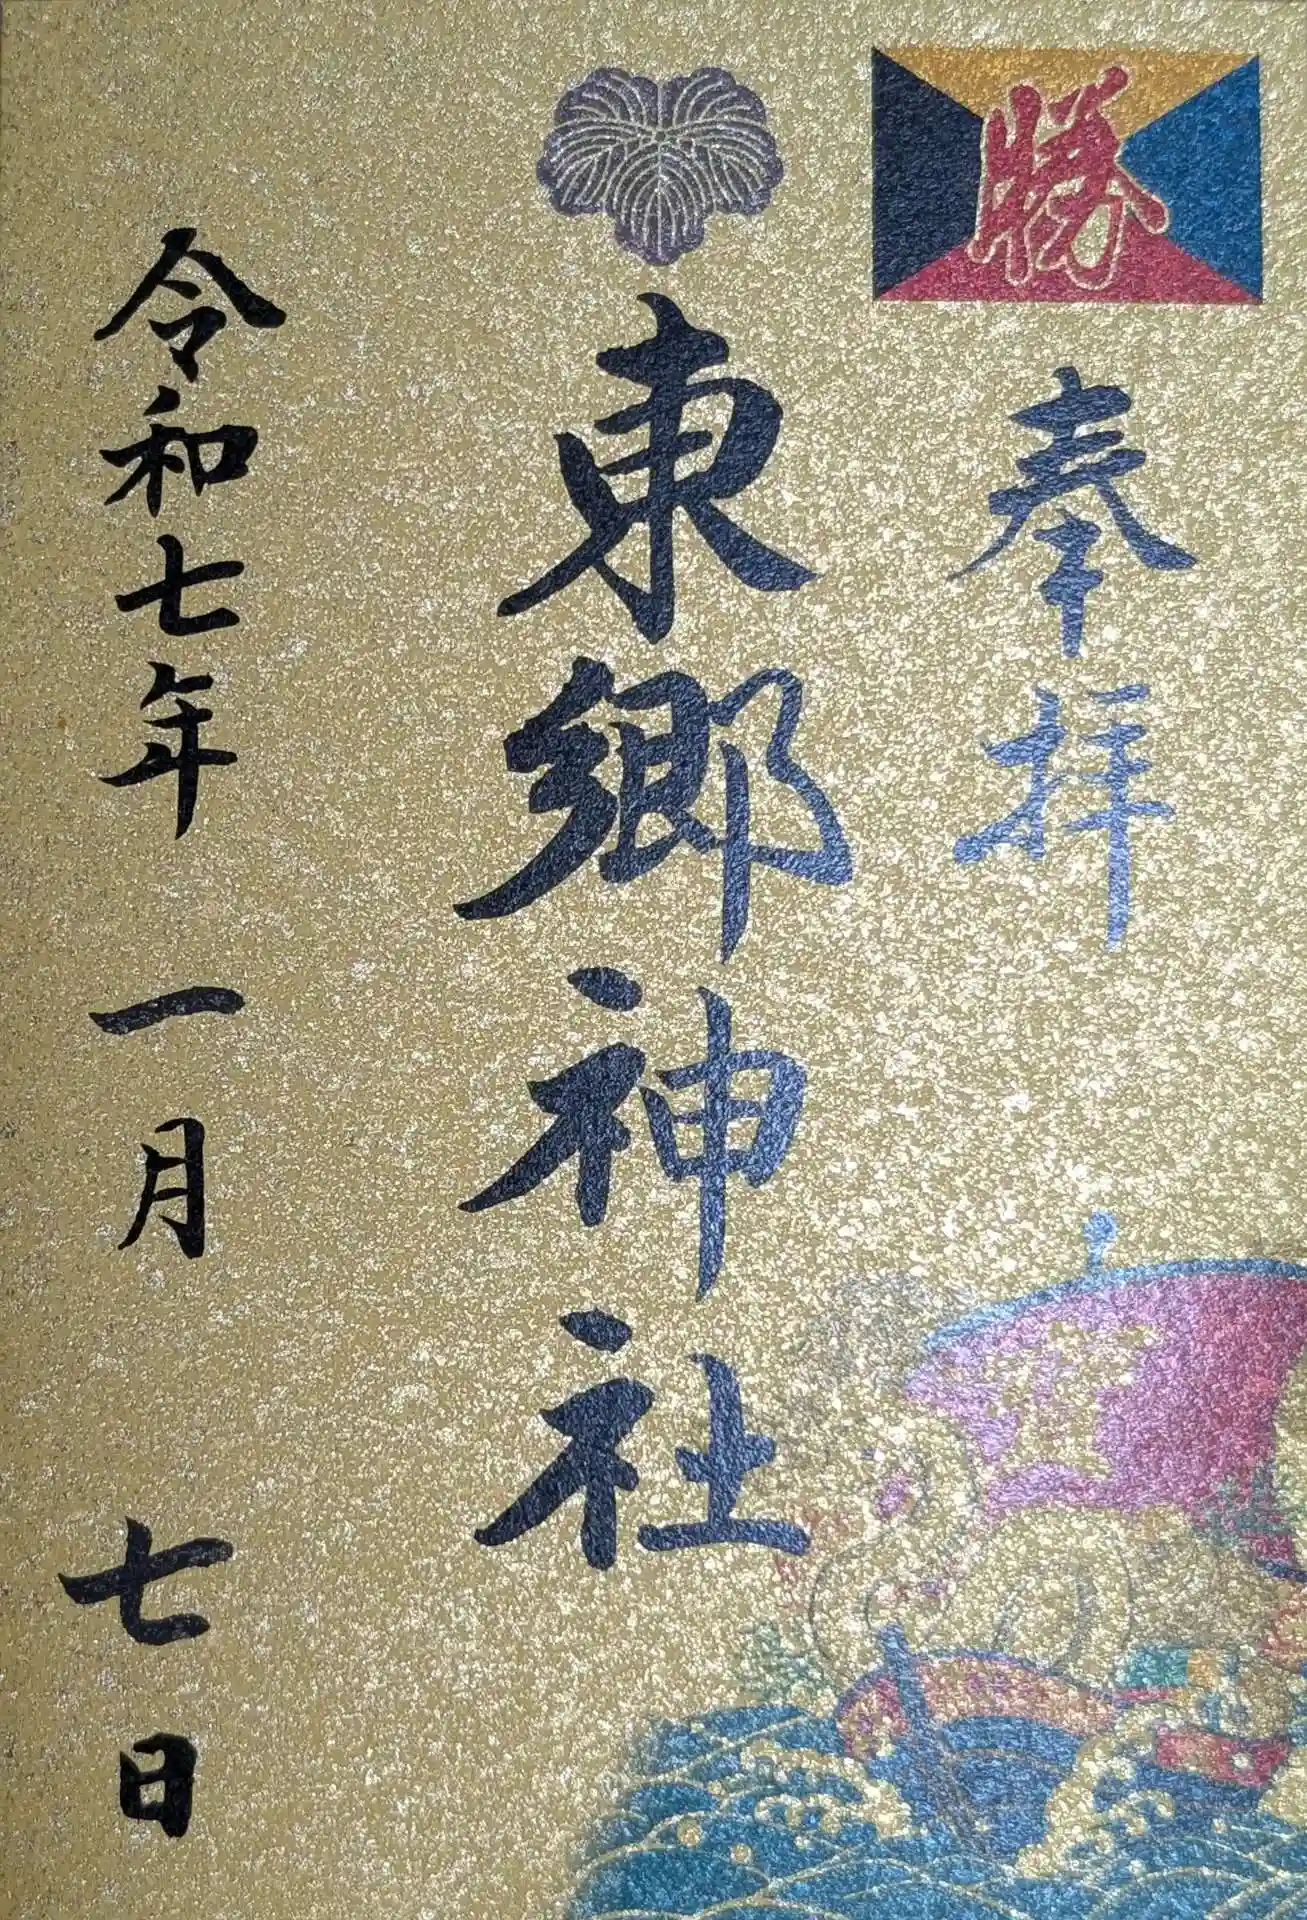 勝
奉拝
東郷神社
令和七年 一月 七日
寳